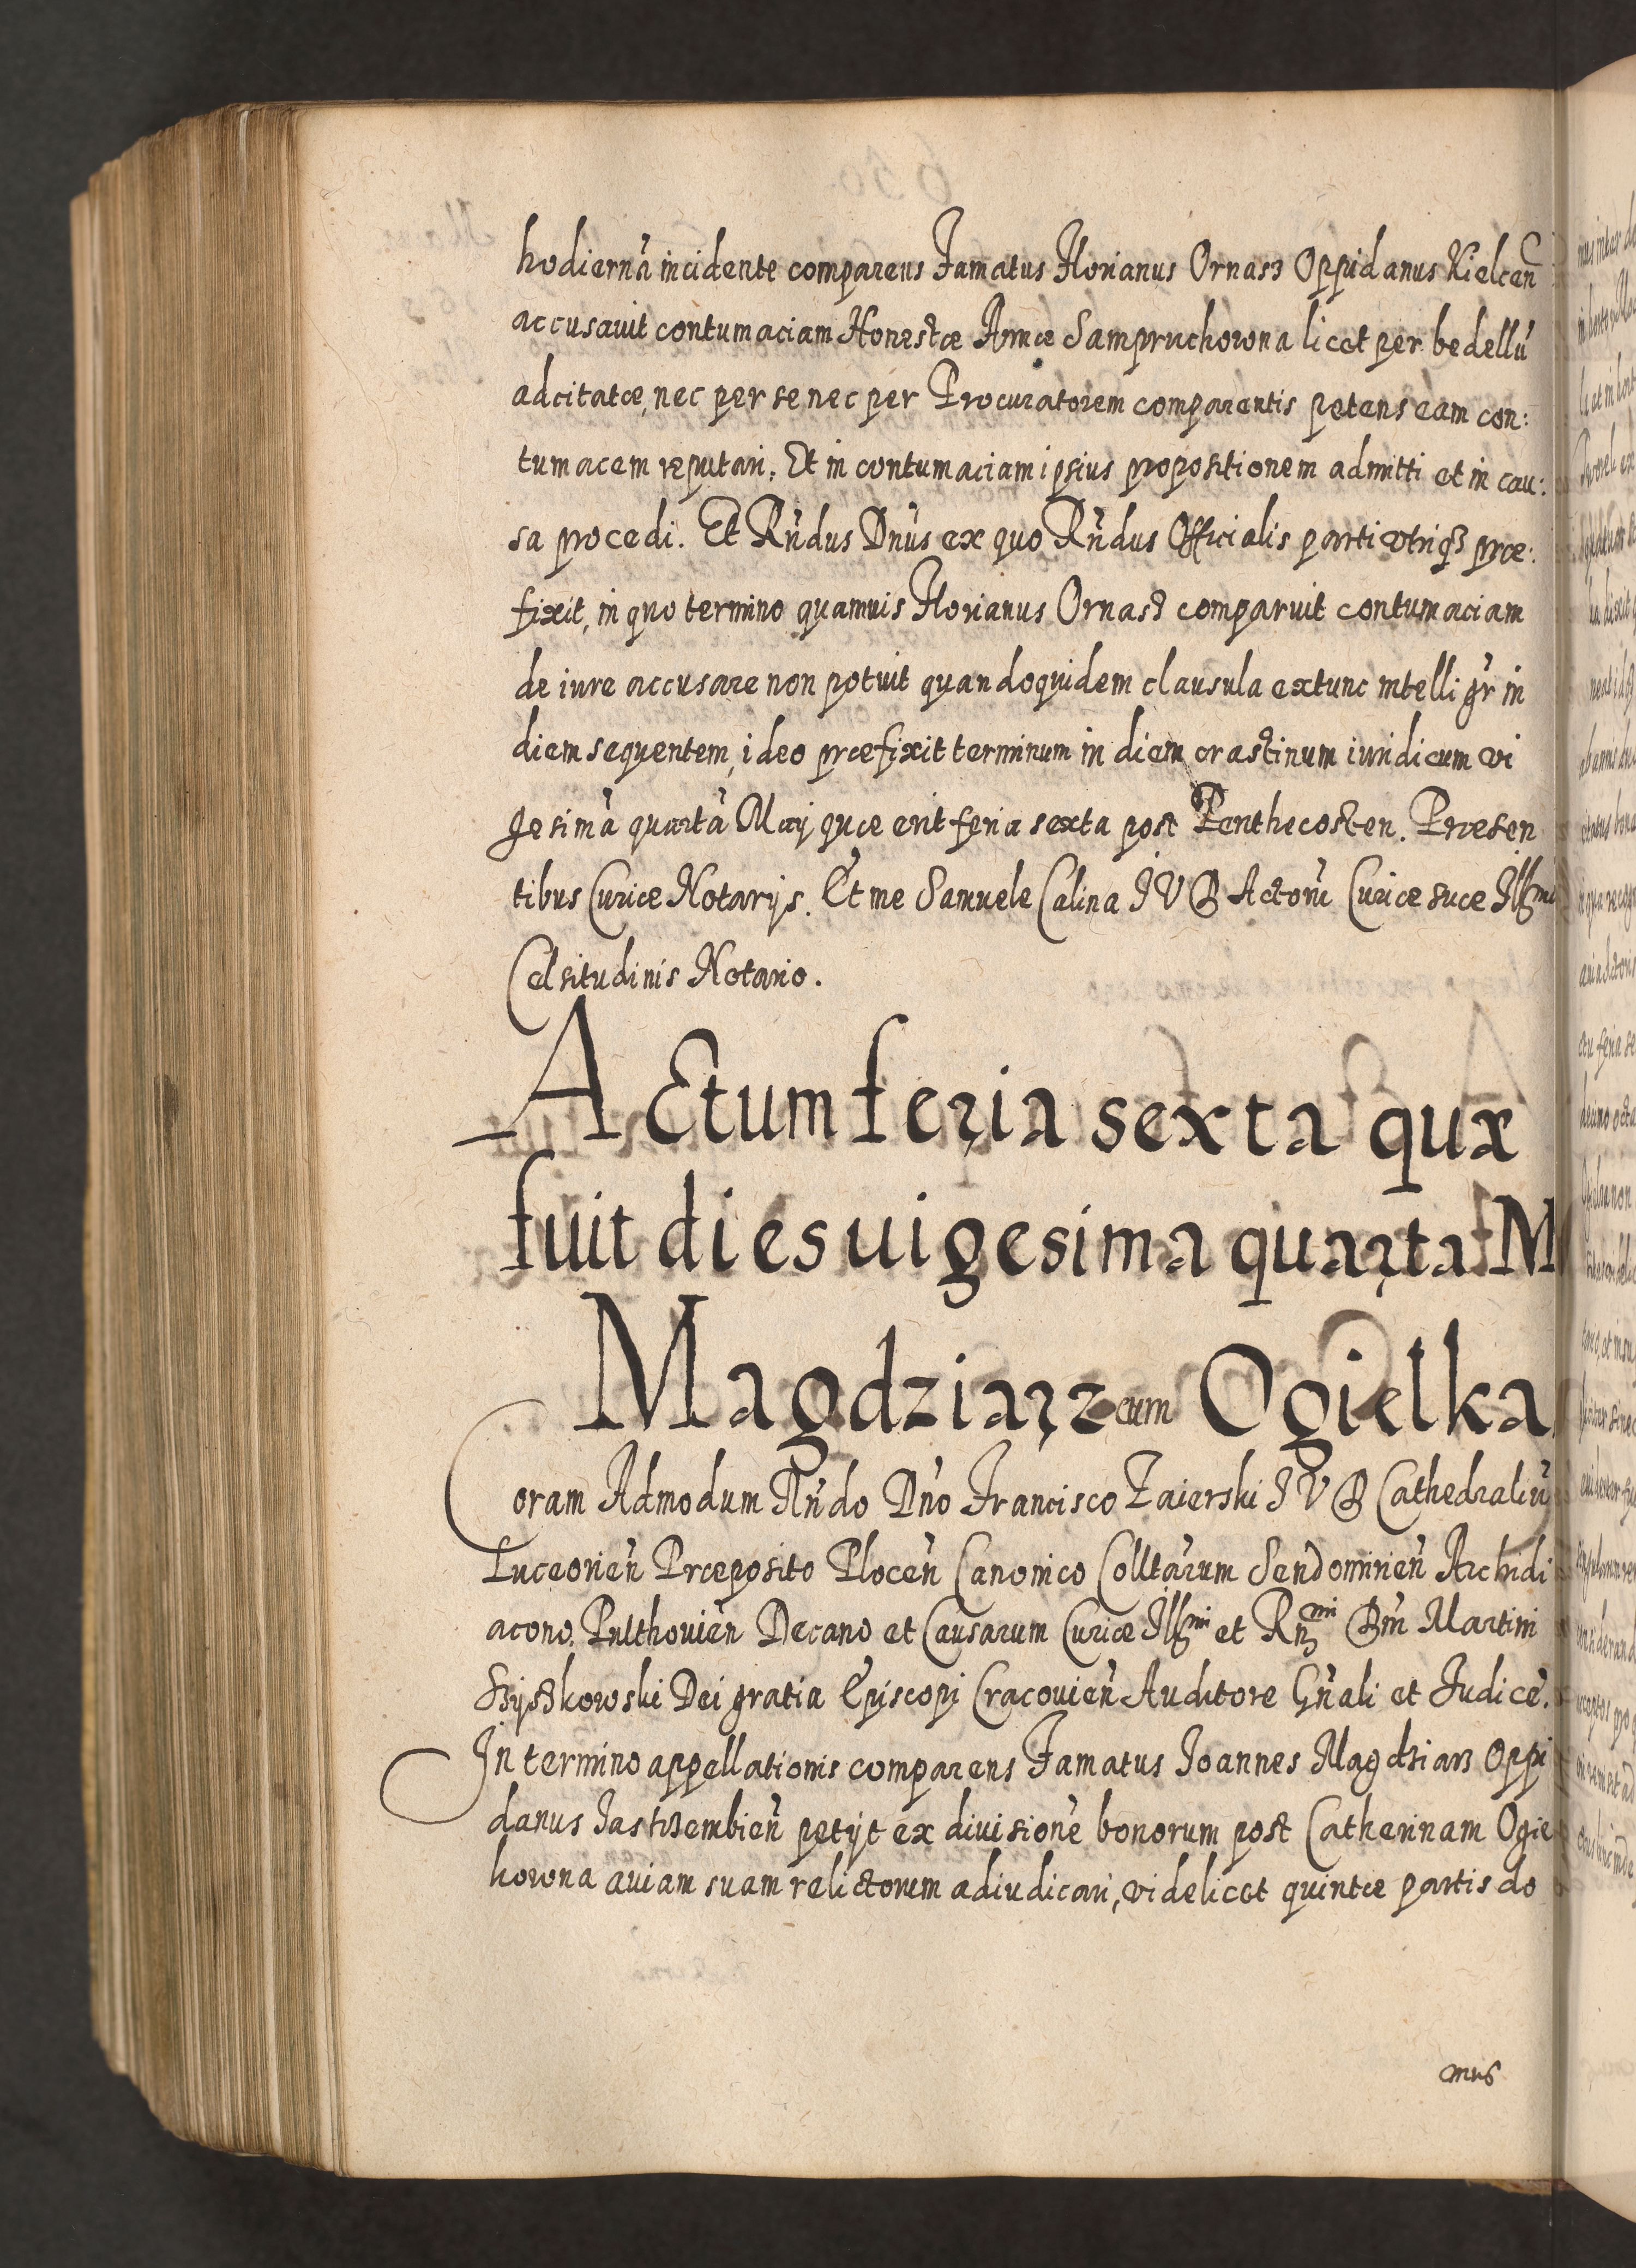 hodiernã incidente comparens Famatus Florianus Ornasz Oppidanus Kielceñ
accusavit contumaciam Honestæ Annæ Sampruchowna licet per bedellũ
adcitatæ, nec per se nec per Procuratorem comparentis petens eam con:
tumacem reputari. Et in contumaciam ipsius propositionem admitti et in cau:
sa procedi. Et Rñdus Dñus ex quo Rñdus Officialis parti vtriqz præ:
fixit, in quo termino quamuis Florianus Ornasz comparuit contumaciam
de iure accusare non potuit quandoquidem clausula extunc intelligr̃ in
diem sequentem, ideo præfixit terminum in diem crastinum iuridicum vi
gesimã quartã Maij quæ erit feria sexta post Penthecosten. Præsen
tibus Curiæ Notarijs. Et me Samuele Calina I V D Actorũ Curiæ suæ Illmæ
Celsitudinis Notario.
Actum feria sexta quæ
fuit dies uigesima quarta M
Magdziarz cum Ogielka
Coram Admodum Rñdo Dño Francisco Zaierski I V D Cathedraliũ
Luceorieñ Præposito Ploceñ Canonico Colltarum Sendomirieñ Archidi
acono. Pulthouieñ Decano et Causarum Curiæ Illmi et Rñmi Dñi Martini
Szyszkowski Dei gratia Episcopi Cracouieñ Auditore Gñali et Iudice.
In termino appellationis comparens Famatus Ioannes Magdziarz Oppi
danus Iastrzembieñ petijt ex diuisione bonorum post Catherinam Ogiel
kowna auiam suam relictorum adiudicari, videlicet quintæ partis do
mus